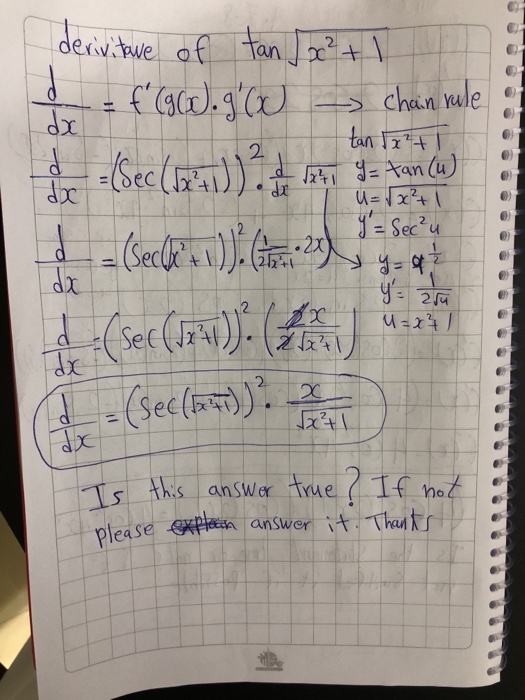 derivitave of tan √(x² + 1)
d/dx = f'(g(x). g'(x) → chain rule
tan √(x² + 1)
d/dx = (Sec(√(x²+1))² . d/dx √(x²+1)
y = tan(u)
u = √(x² + 1)
y' = Sec² u
d/dx = (Sec(√(x²+1))². (1/(2√(x²+1)) . 2x)
y = u^(1/2)
y' = 1/(2√u)
u = x²+1
d/dx = (Sec(√(x²+1))². (2x/(2√(x²+1)))
d/dx = (Sec(√(x²+1))². x/√(x²+1)
Is this answer true? If not
please explain answer it. Thanks